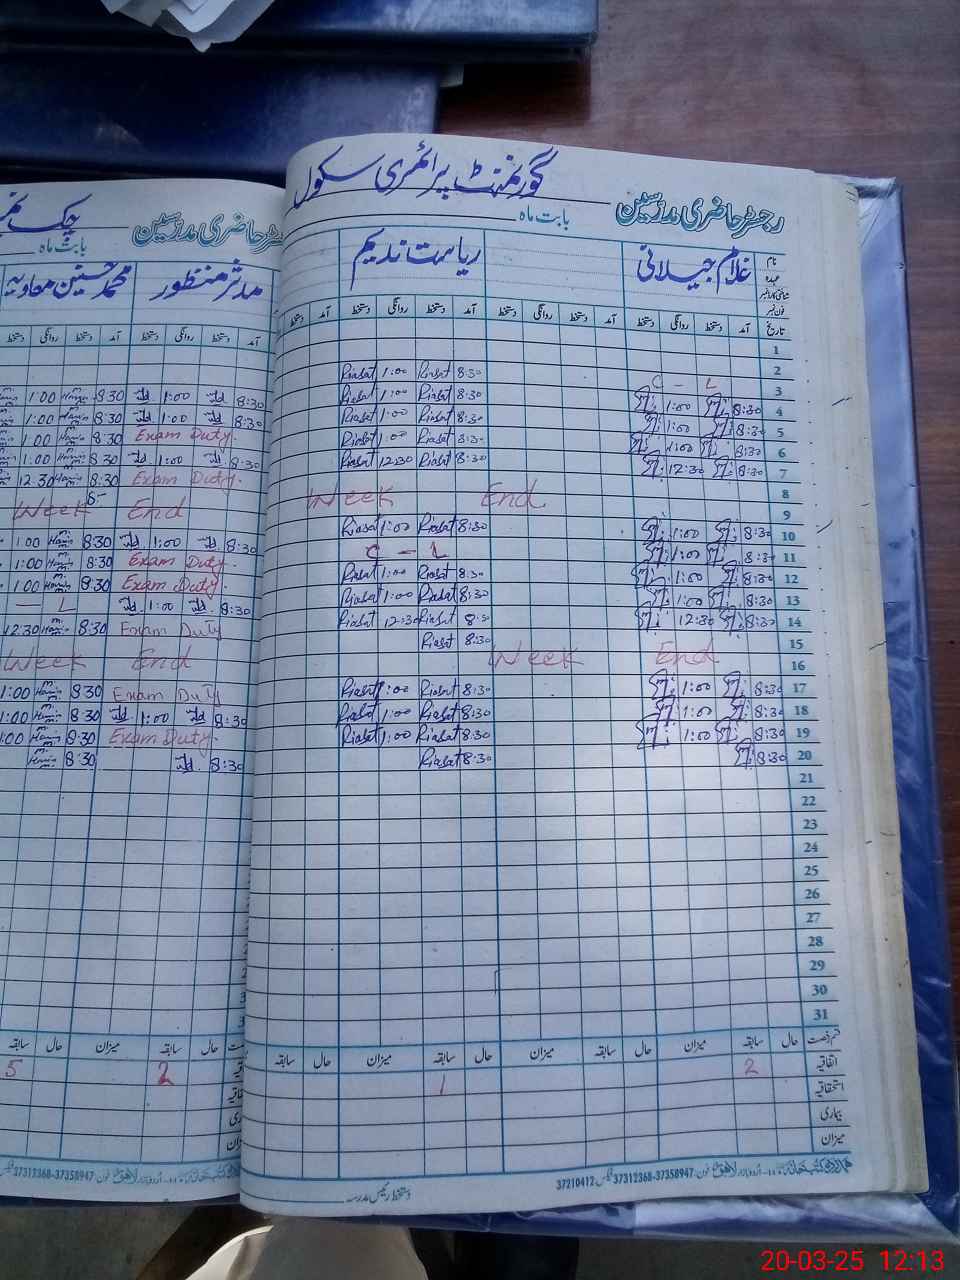 گورنمنٹ پرائمری سکول
رجسٹر حاضری مدرسین بابت ماہ
نام غلام جیلانی ریاست ندیم
عہدہ
تاریخ آمد دستخط روانگی دستخط آمد دستخط روانگی دستخط آمد دستخط روانگی دستخط آمد دستخط
1
2 Riasat 1:00 Riasat 8:30
3 Riasat 1:00 Riasat 8:30 C - L
4 Riasat 1:00 Riasat 8:30 1:00 8:30
5 Riasat 1:00 Riasat 8:30 1:00 8:30
6 Riasat 12:30 Riasat 8:30 1:00 8:30
7 12:30 8:30
8 Week End
9
10 Riasat 1:00 Riasat 8:30 1:00 8:30
11 C - L 1:00 8:30
12 Riasat 1:00 Riasat 8:30 1:00 8:30
13 Riasat 1:00 Riasat 8:30 1:00 8:30
14 Riasat 12:30 Riasat 8:30 12:30 8:30
15 Riasat 8:30
16 Week End
17 Riasat 1:00 Riasat 8:30 1:00 8:30
18 Riasat 1:00 Riasat 8:30 1:00 8:30
19 Riasat 1:00 Riasat 8:30 1:00 8:30
20 Riasat 8:30 8:30
21
22
23
24
25
26
27
28
29
30
31
قسم رخصت حال سابقہ میزان حال سابقہ میزان حال سابقہ میزان حال سابقہ
اتفاقیہ 2 1
استحقاقیہ
بیماری
میزان
اردو بازار لاہور فون: 37358947-37312368 فیکس 37210412
دستخط رئیس مدرسہ
چک
حاضری مدرسین بابت ماہ
مدثر منظور محمد حسنین معاویہ
آمد دستخط روانگی دستخط آمد دستخط روانگی دستخط
1:00 8:30 1:00 8:30
1:00 8:30 1:00 8:30
1:00 8:30 Exam Duty.
1:00 8:30 1:00 8:30
12:30 8:30 Exam Duty.
Week End
1:00 8:30 1:00 8:30
1:00 8:30 Exam Duty.
1:00 8:30 Exam Duty.
- L 1:00 8:30
12:30 8:30 Exam Duty
Week End
1:00 8:30 Exam Duty
1:00 8:30 1:00 8:30
1:00 8:30 Exam Duty.
8:30 8:30
حال سابقہ میزان حال سابقہ
5 2
37358947-37312368
20-03-25 12:13